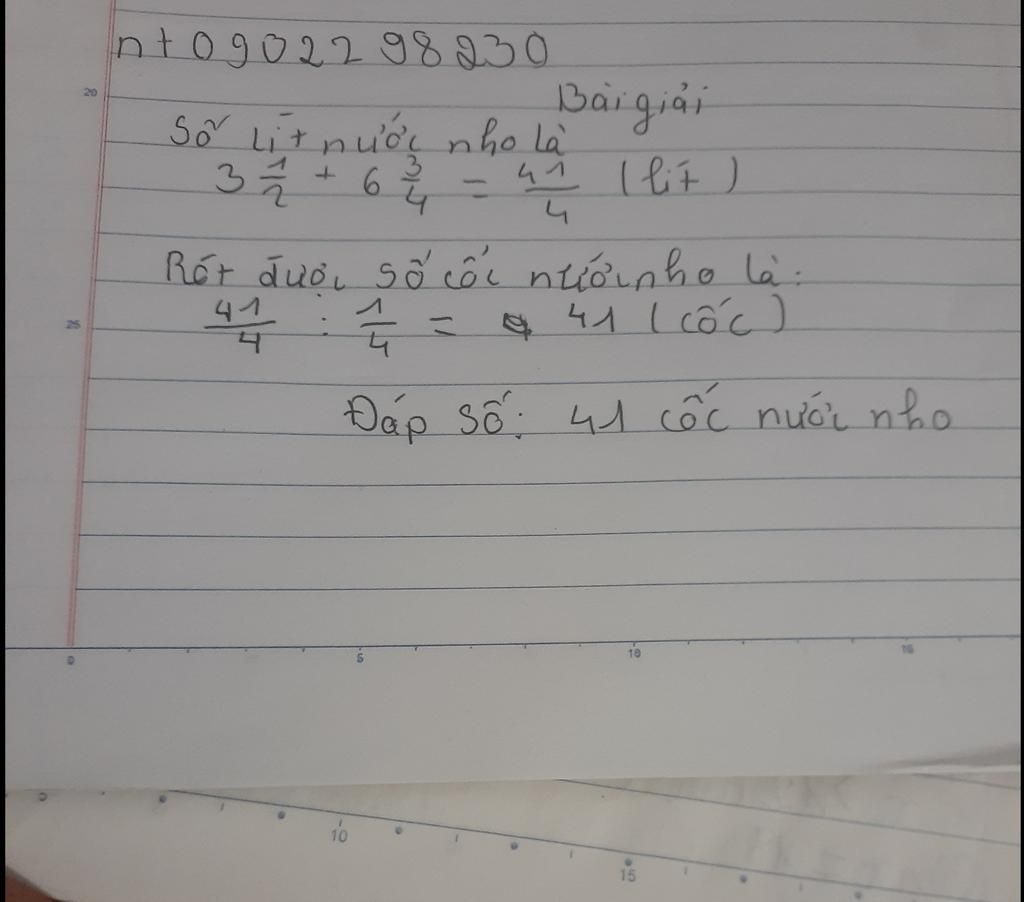 n+0902298230
20
Bài giải
Số lít nước nho là
3 1/2 + 6 3/4 = 41/4 (lít)
Rót được số cốc nước nho là:
25
41/4 : 1/4 = 41 (cốc)
Đáp số: 41 cốc nước nho
0 5 10 15
10 15